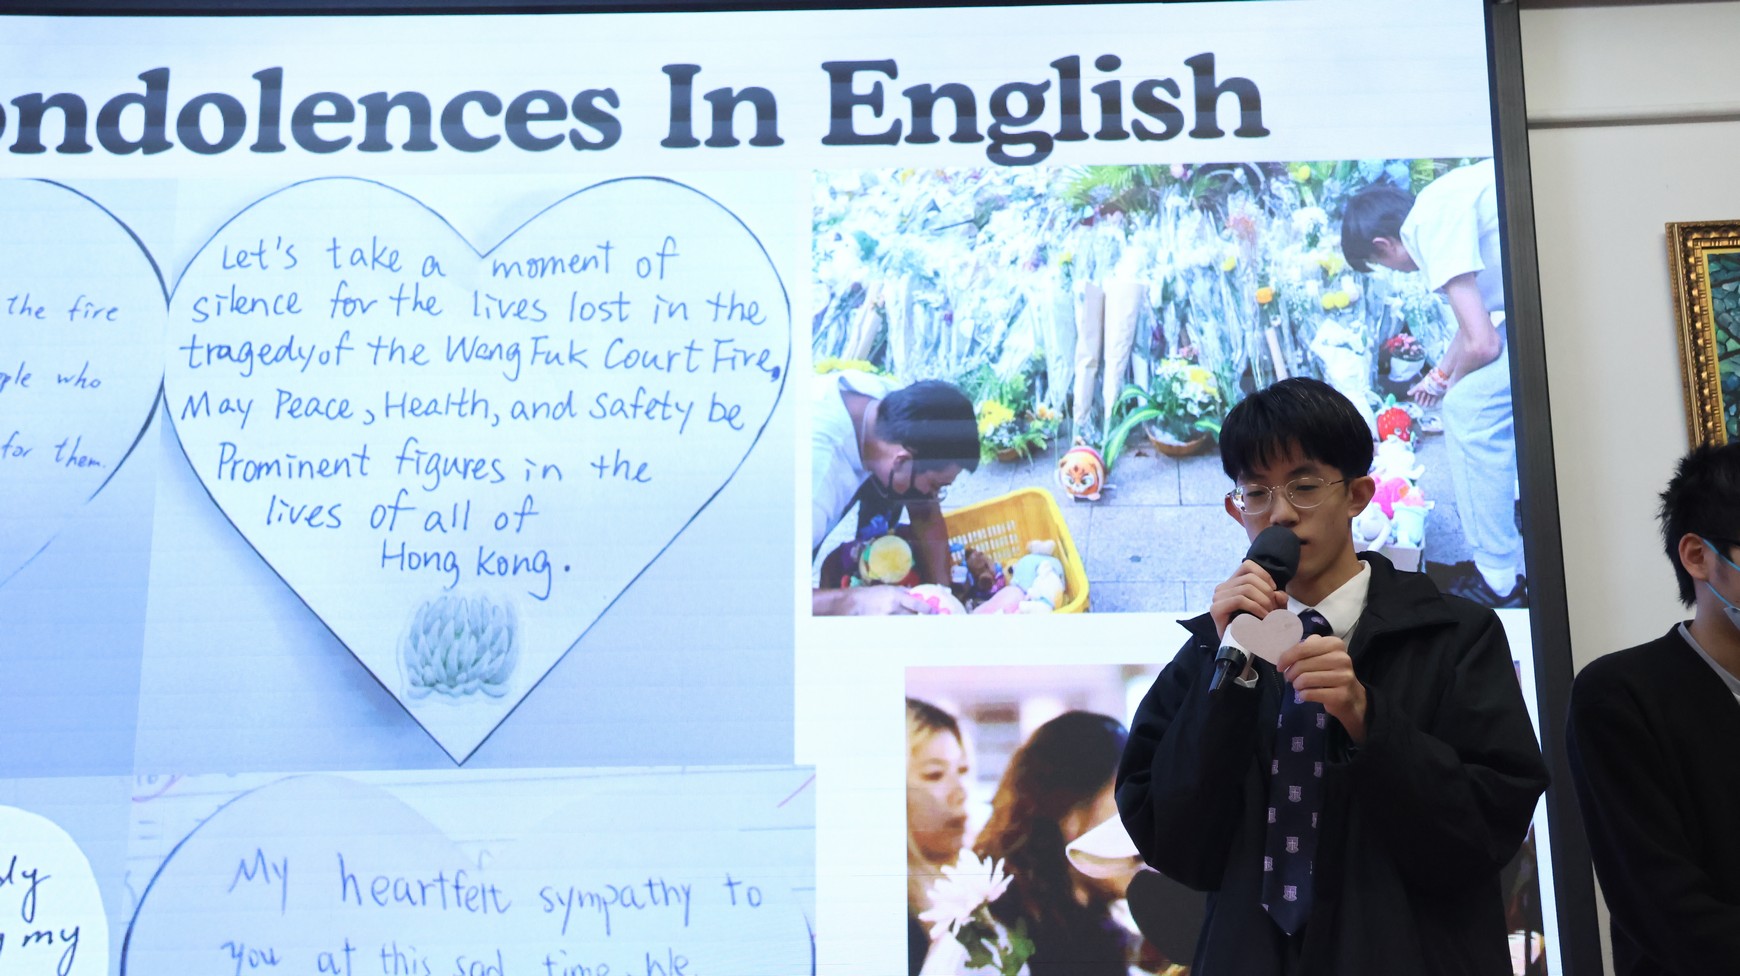 ondolences In English
the fire
ple who
for them.
Let's take a moment of
silence for the lives lost in the
tragedy of the Wang Fuk Court Fire,
May Peace, Health, and Safety be
Prominent figures in the
lives of all of
Hong Kong.
My heartfelt sympathy to
you at this sad time. We
my